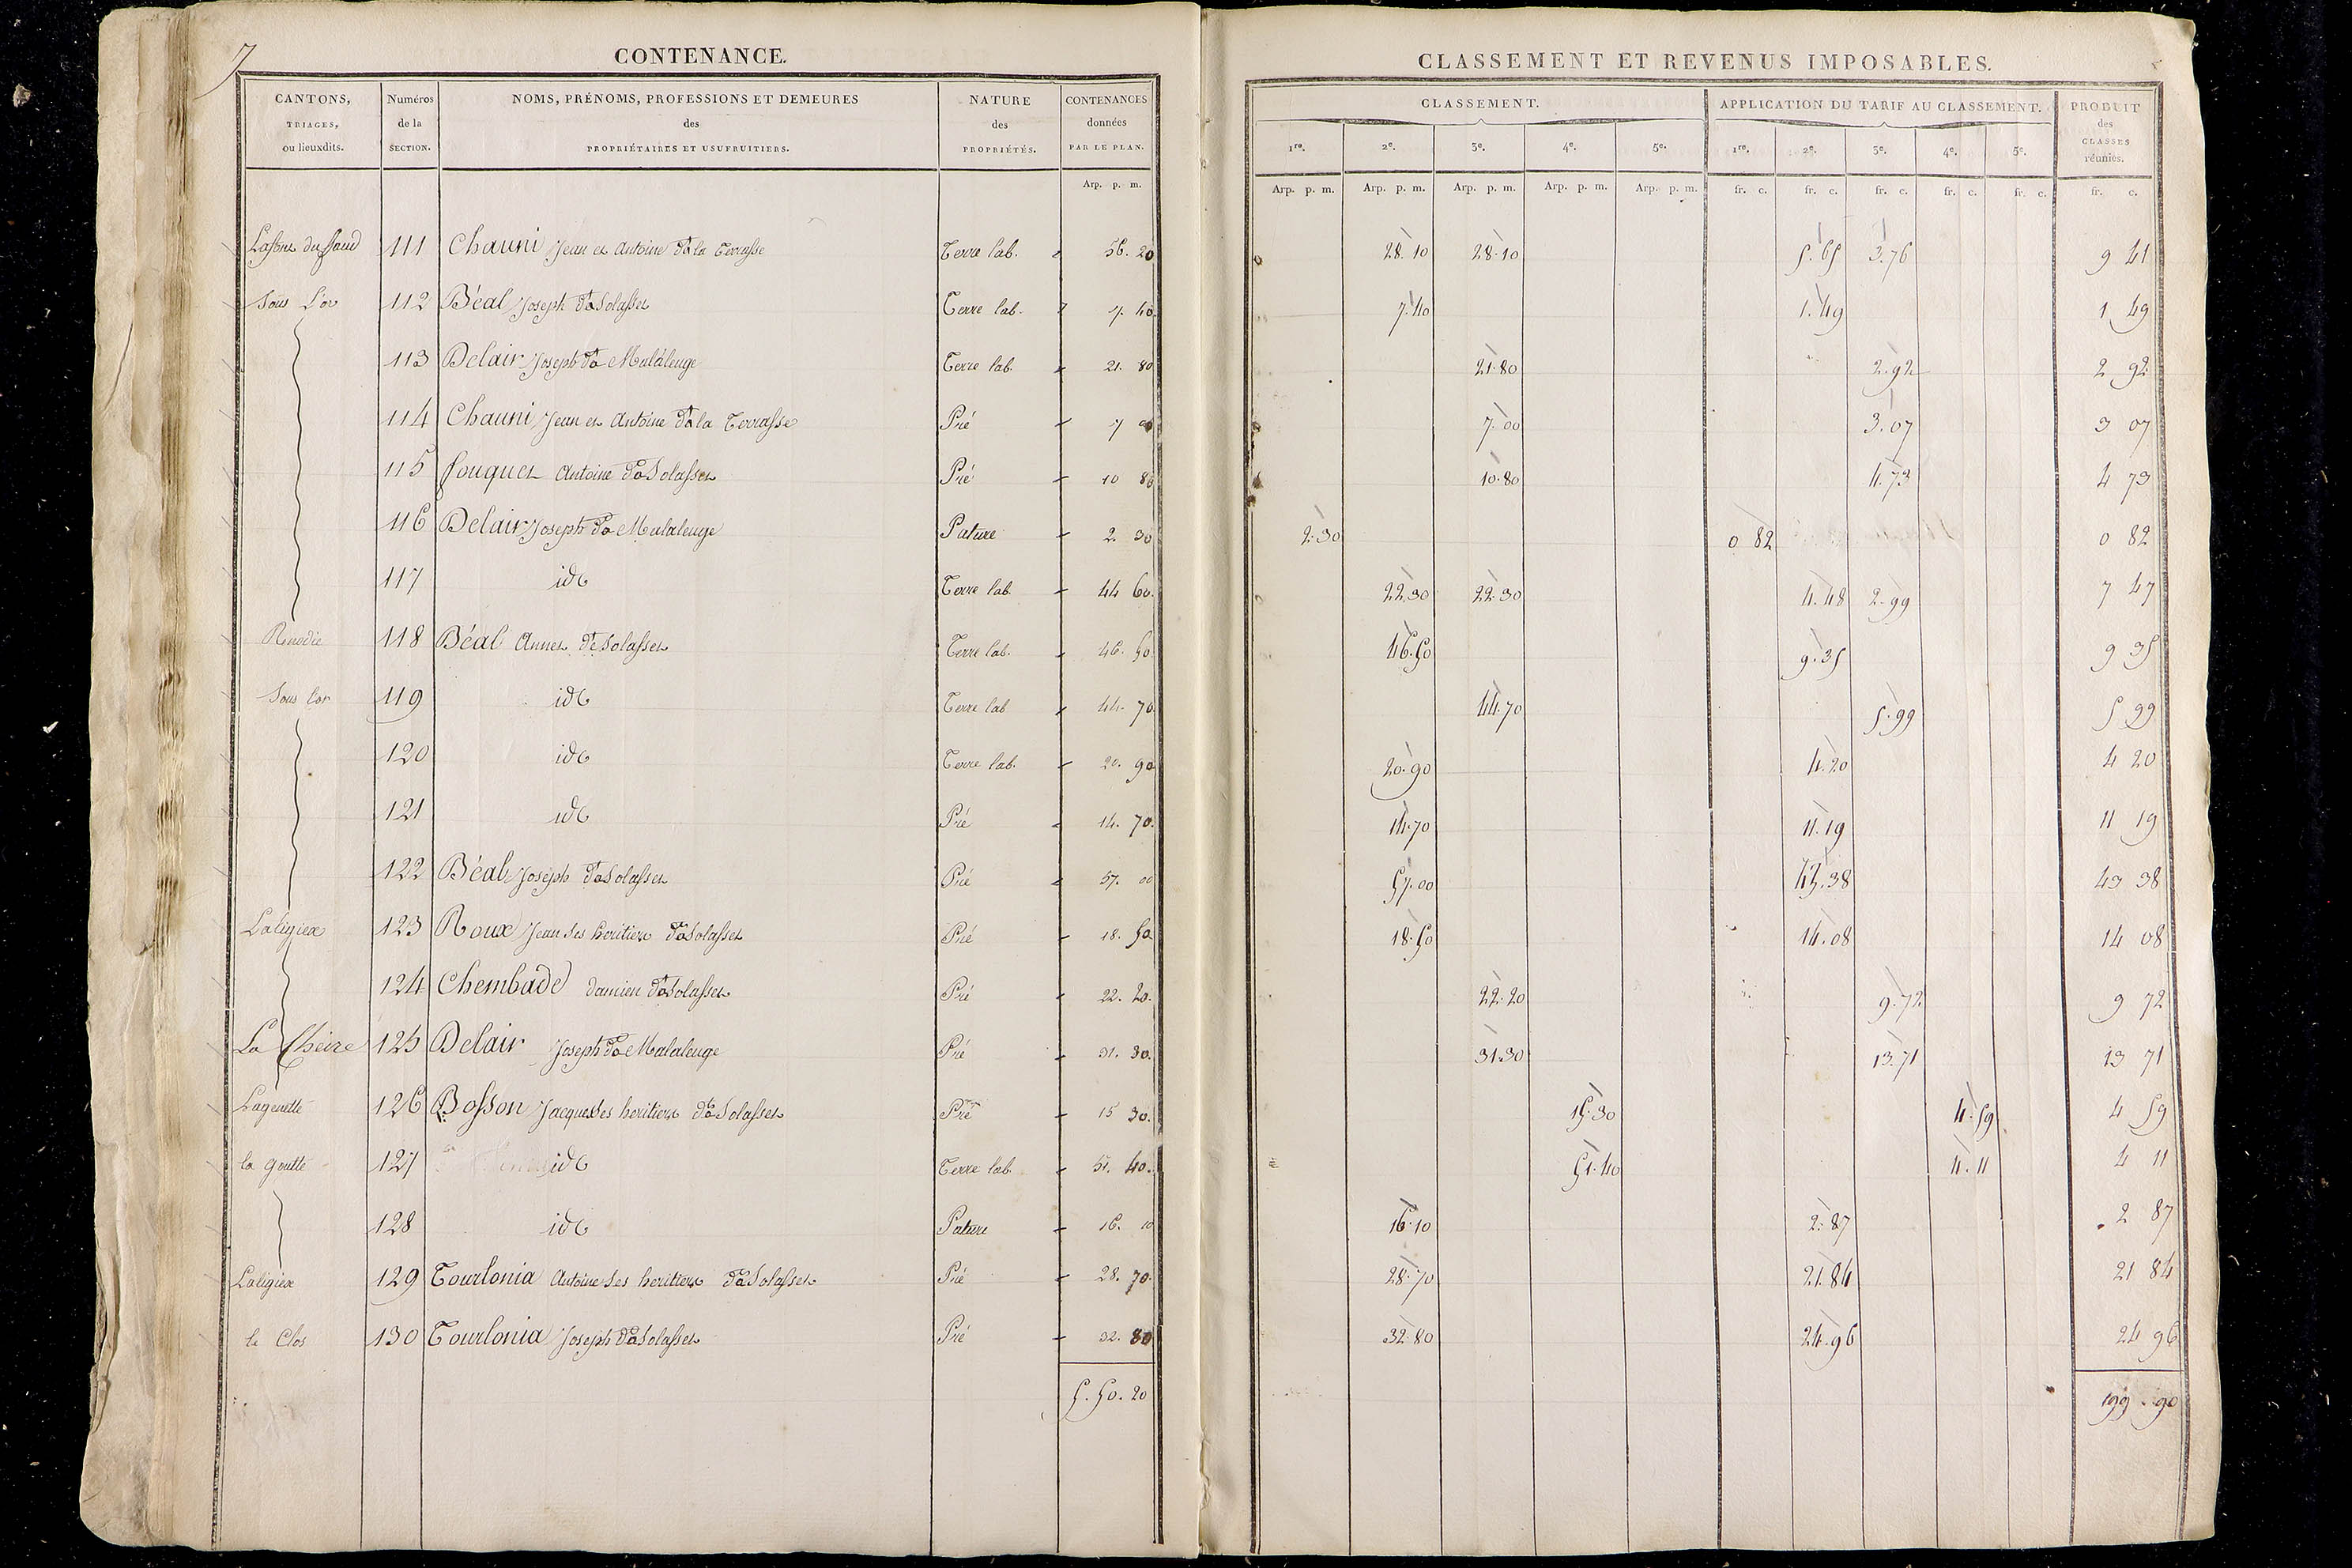 7
CONTENANCE.
CANTONS, TRIAGES, ou lieuxdits. Numéros de la SECTION. NOMS, PRÉNOMS, PROFESSIONS ET DEMEURES des PROPRIÉTAIRES ET USUFRUITIERS. NATURE des PROPRIÉTÉS. CONTENANCES données PAR LE PLAN.
Arp. p. m.
CLASSEMENT ET REVENUS IMPOSABLES.
CLASSEMENT. APPLICATION DU TARIF AU CLASSEMENT. PRODUIT des CLASSES réunies.
1re. 2e. 3e. 4e. 5e. 1re. 2e. 3e. 4e. 5e.
Arp. p. m. Arp. p. m. Arp. p. m. Arp. p. m. Arp. p. m. fr. c. fr. c. fr. c. fr. c. fr. c. fr. c.
111 Chauni Jean et Antoine dt a la Terrasse Terre lab. 56. 20 28. 10 28. 10 5. 65 3. 76 9 41
Sous L'or 112 Béal Joseph dt a Solasset Terre lab. 7. 40 7. 40 1. 49 1 49
113 Delair Joseph dt a Malaleuge Terre lab. 21. 80 21. 80 2. 92 2 92
114 Chauni Jean et Antoine dt a la Terrasse Pré 7 00 7. 00 3. 07 3 07
115 fouquet Antoine dt a Solasset Pré 10 80 10. 80 4. 73 4 73
116 Delair Joseph dt a Malaleuge Pature 2. 30 2. 30 0 82 0 82
117 id Terre lab. 44 60. 22. 30 22. 30 4. 48 2. 99 7 47
118 Béal Annet dt a Solasset Terre lab. 46. 50 46. 50 9. 35 9 35
Sous l'or 119 id Terre lab 44. 70. 44. 70 5. 99 5 99
120 id Terre lab. 20. 90 20. 90 4. 20 4 20
121 id Pré 14. 70. 14. 70 11. 19 11 19
122 Béal Joseph dt a Solasset Pré 57. 00 57. 00 43. 38 43 38
Laligiere 123 Roux Jean ses heritiers dt a Solasset Pré 18. 50 18. 50 14. 08 14 08
124 Chembade damien dt a Solasset Pré 22. 20. 22. 20 9. 72 9 72
La Cheire 125 Delair Joseph dt a Malaleuge Pré 31. 30. 31. 30 13. 71 13 71
Lagoutte 126 Bosson Jacques ses heritiers dt a Solasset Pré 15 30. 15. 30 4. 59 4 59
la goutte 127 id Terre lab. 51. 40. 51. 40 4. 11 4 11
128 id Pature 16. 10 16. 10 2. 87 2 87
Laligiere 129 Tourlonia Antoine ses heritiers dt a Solasset Pré 28. 70. 28. 70 21. 84 21 84
le Clos 130 Tourlonia Joseph dt a Solasset Pré 32. 80 32. 80 24. 96 24 96
5. 50. 20 199. 90